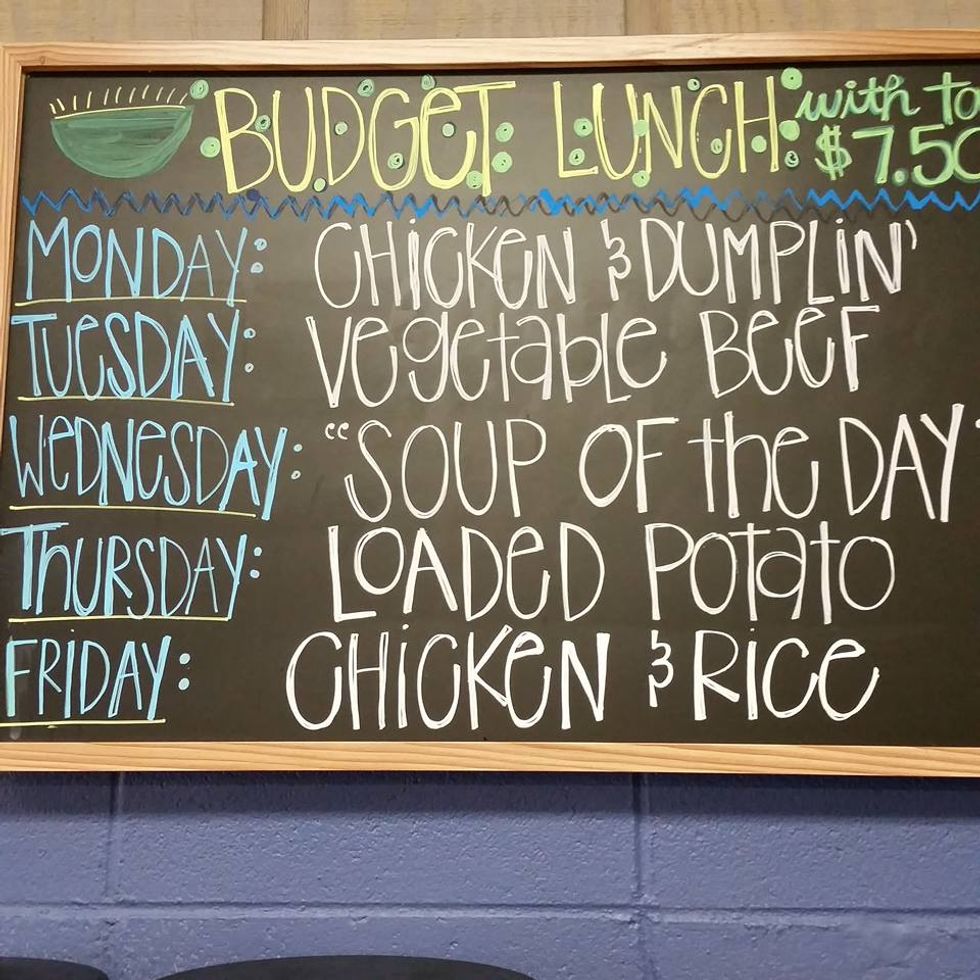 BUDGET LUNCH with
$7.50
MONDAY: CHICKEN & DUMPLIN'
TUESDAY: Vegetable BEEF
WEDNESDAY: "SOUP OF the DAY
THURSDAY: LOADED POTATO
FRIDAY: CHICKEN & RICE